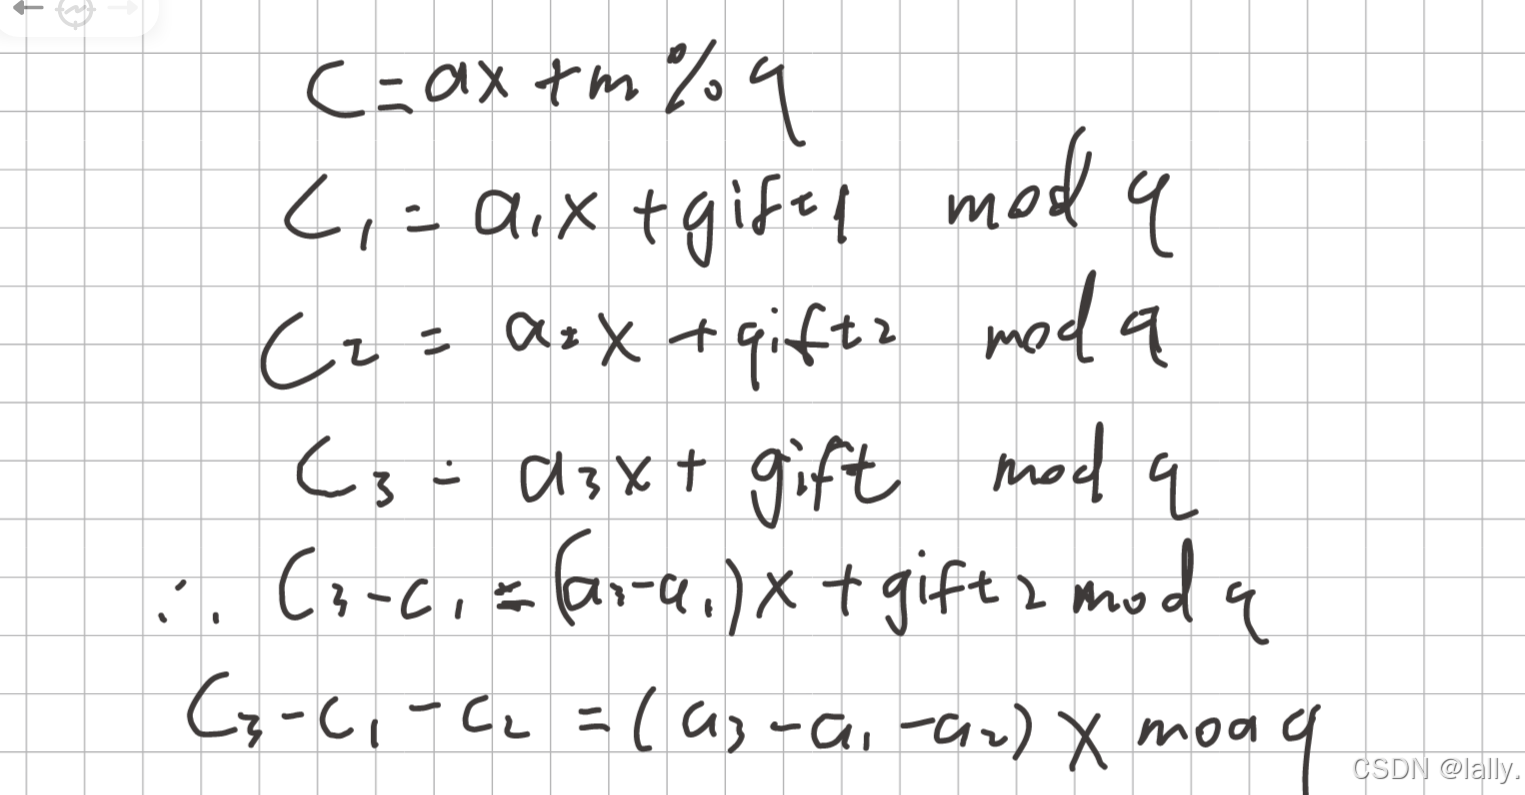 C = ax + m % q
C₁ = a₁x + gift1 mod q
C₂ = a₂x + gift2 mod q
C₃ = a₃x + gift mod q
∴ C₃ - C₁ = (a₃ - a₁)x + gift2 mod q
C₃ - C₁ - C₂ = (a₃ - a₁ - a₂)x mod q
CSDN @lally.